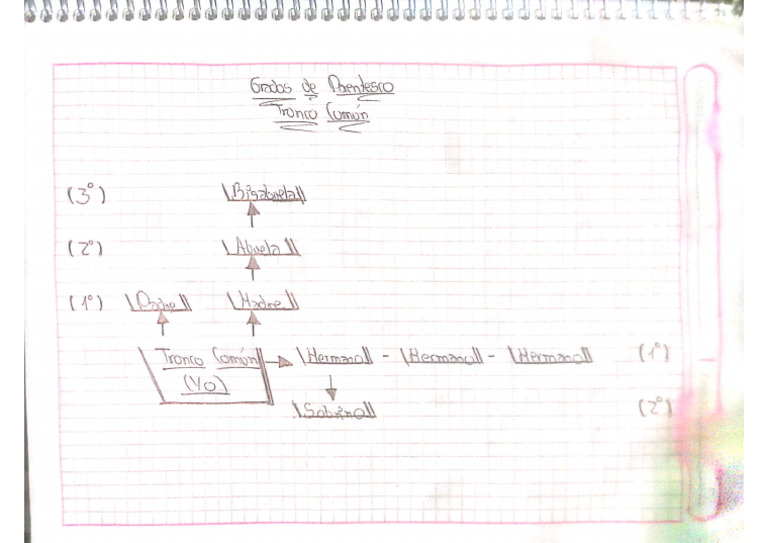 Grados de Parentesco
Tronco Común
(3°) Bisabuela
(2°) Abuela
(1°) Padre Madre
Tronco Común Hermano - Hermano - Hermano (1°)
(Yo)
Sobrino (2°)